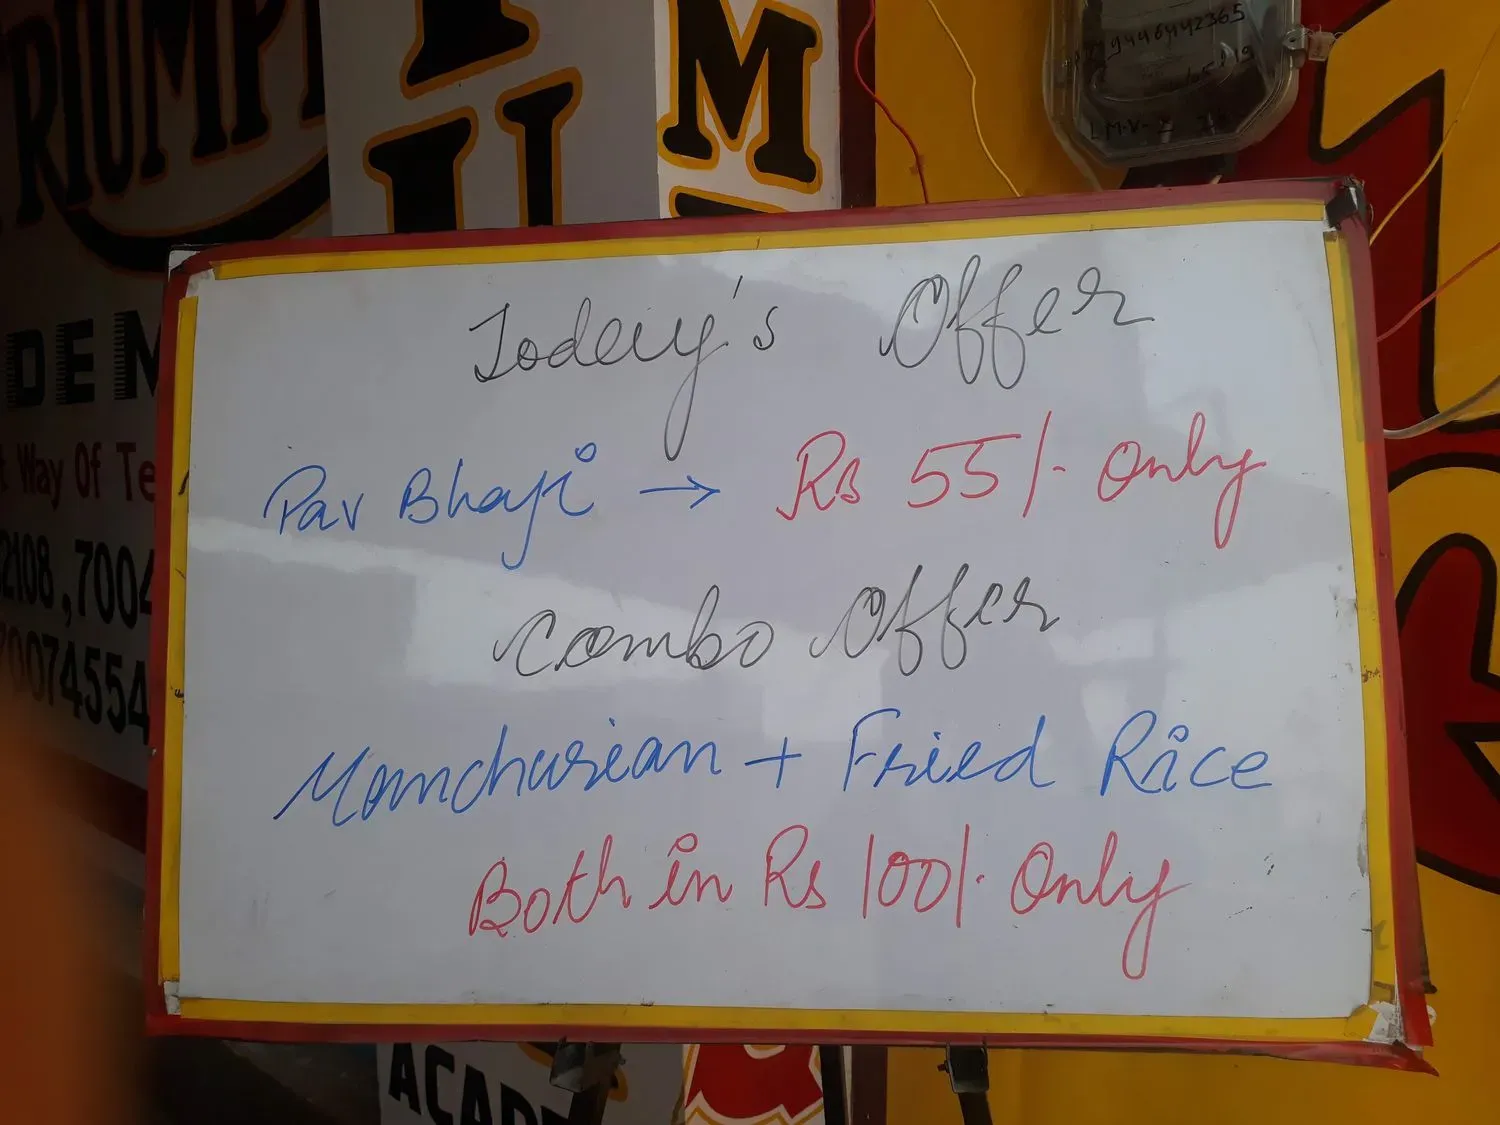 TRIUMP
U
M
DEM
Way Of Te
2108, 7004
70074554
Today's Offer
Pav Bhaji → Rs 55/- Only
Combo Offer
Manchurian + Fried Rice
Both in Rs 100/- Only
ACAD